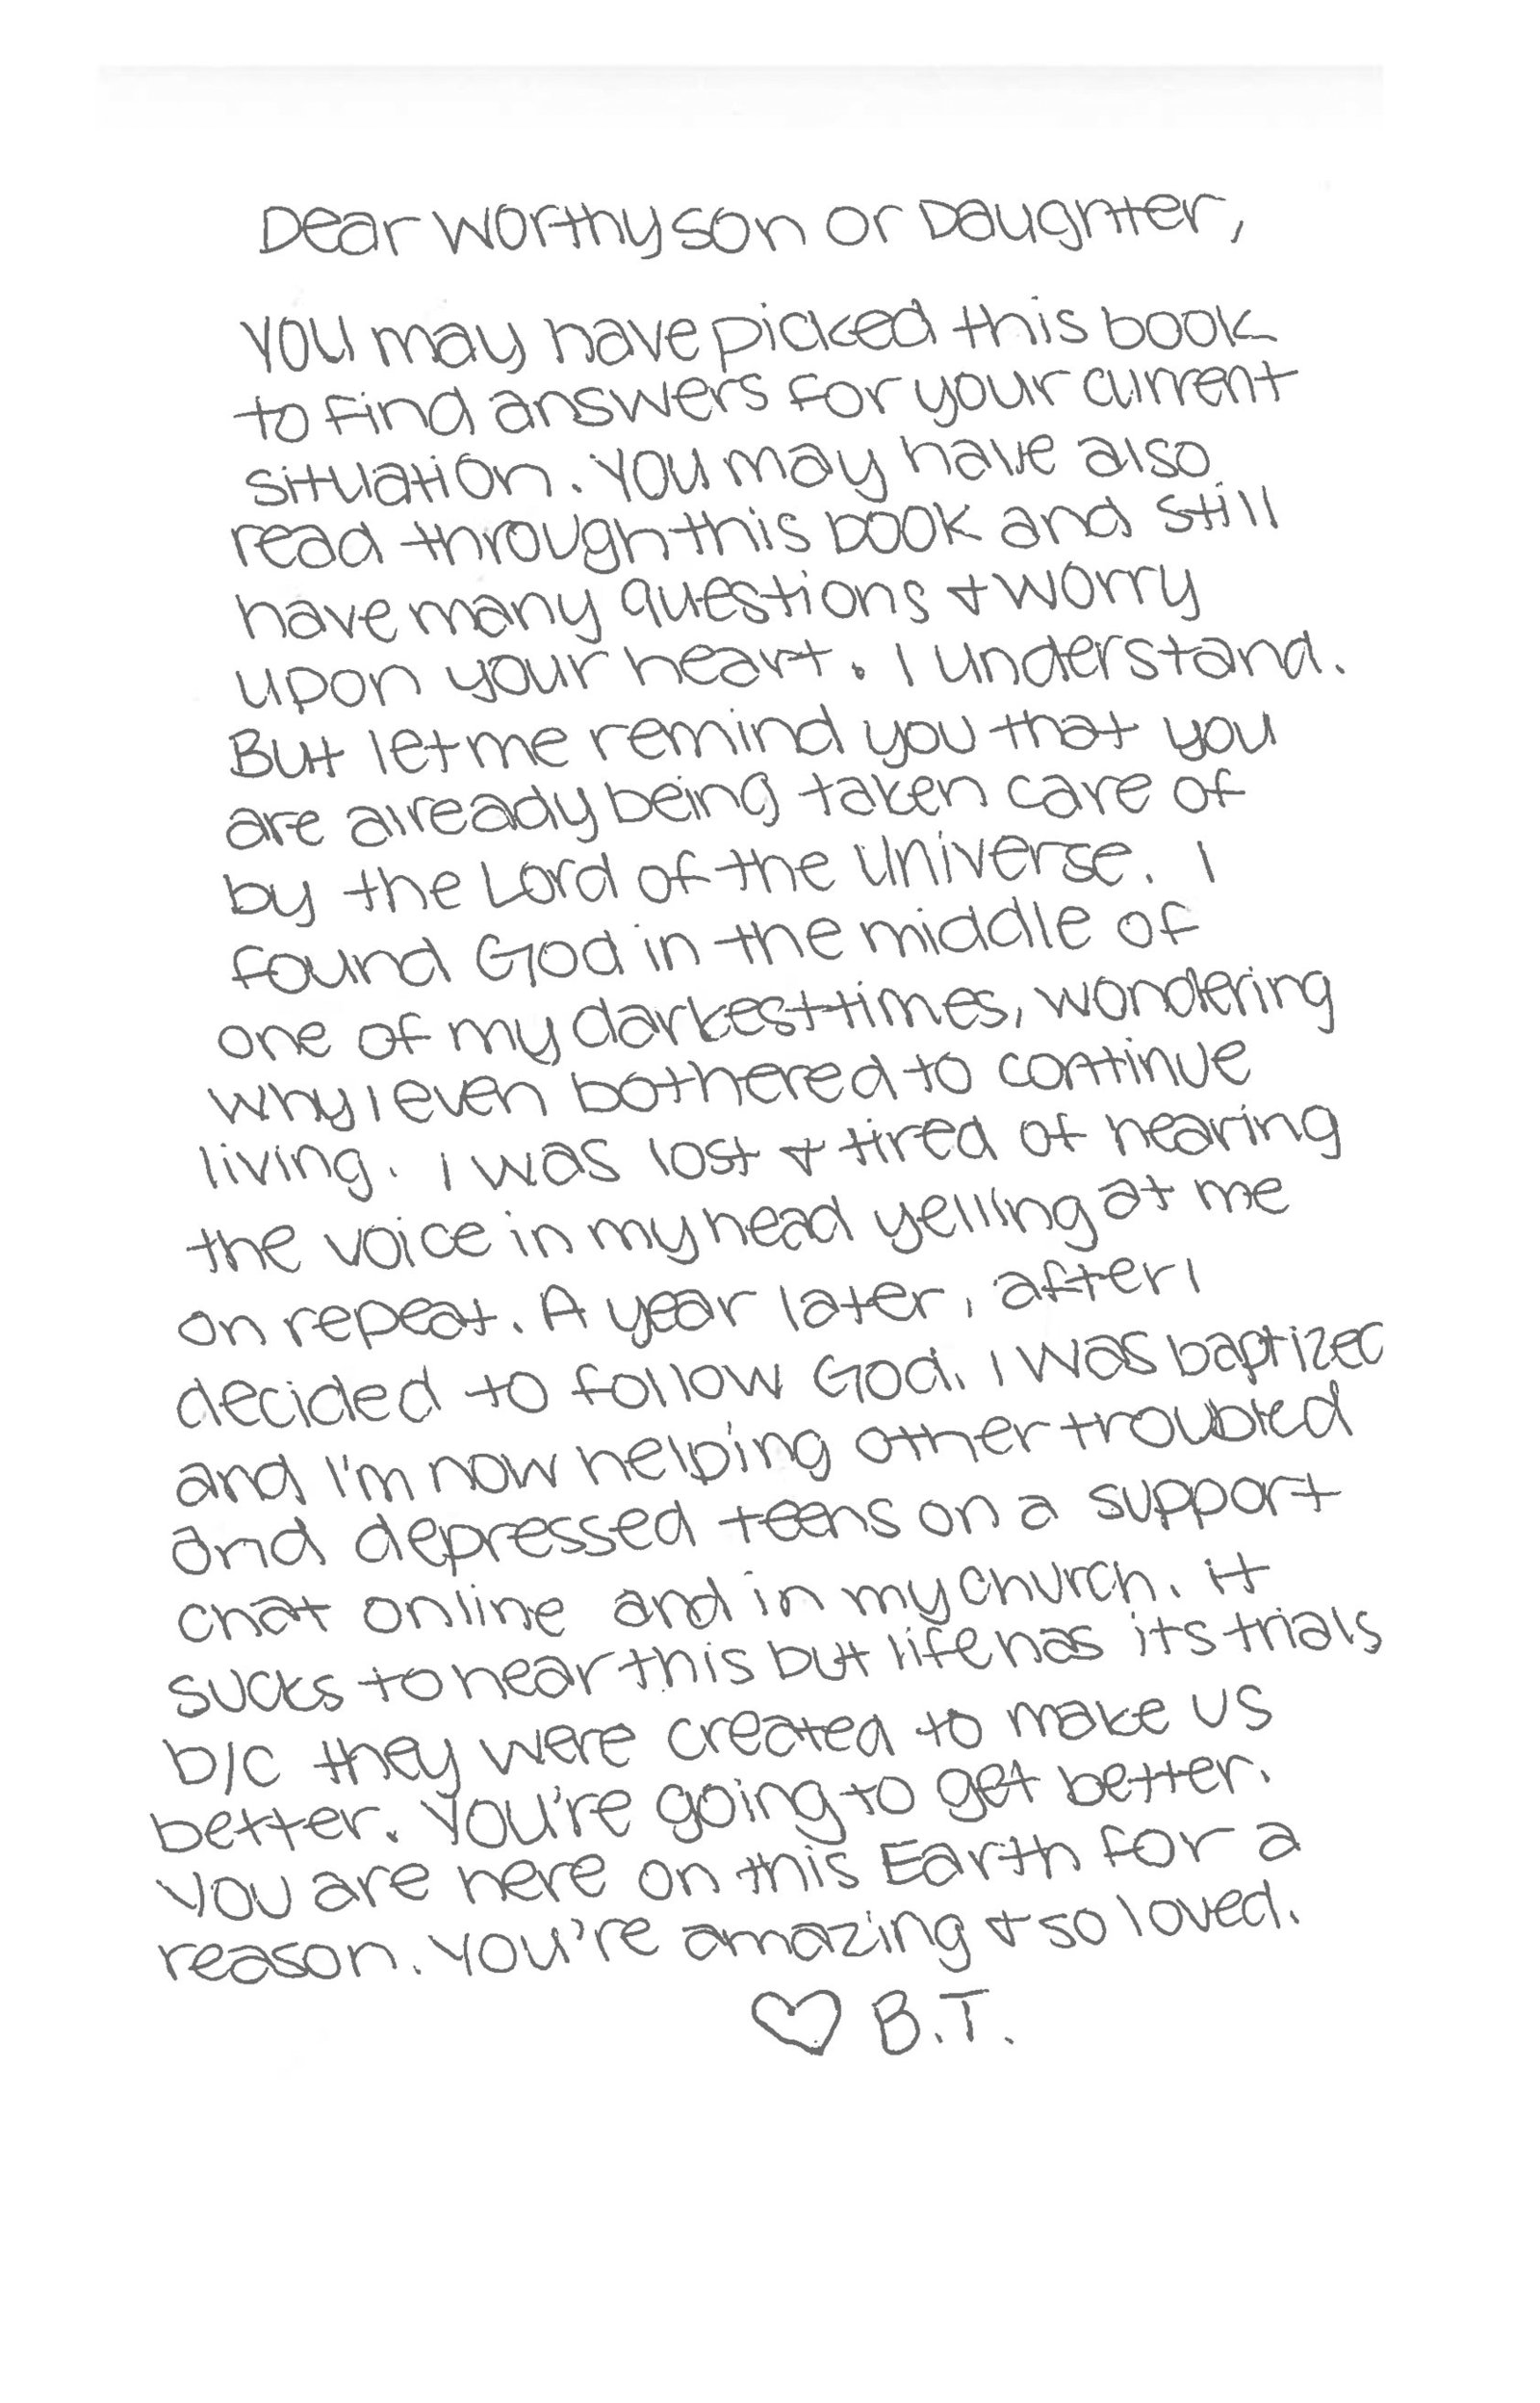 Dear Worthy son or Daughter,
You may have picked this book
to find answers for your current
situation. You may have also
read through this book and still
have many questions + worry
upon your heart. I understand.
But let me remind you that you
are already being taken care of
by the Lord of the Universe. I
found God in the middle of
one of my darkest times, wondering
why I even bothered to continue
living. I was lost + tired of hearing
the voice in my head yelling at me
on repeat. A year later, after I
decided to follow God, I was baptized
and I'm now helping other troubled
and depressed teens on a support
chat online and in my church. It
sucks to hear this but life has its trials
b/c they were created to make us
better. You're going to get better.
You are here on this Earth for a
reason. You're amazing + so loved.
♡ B.T.